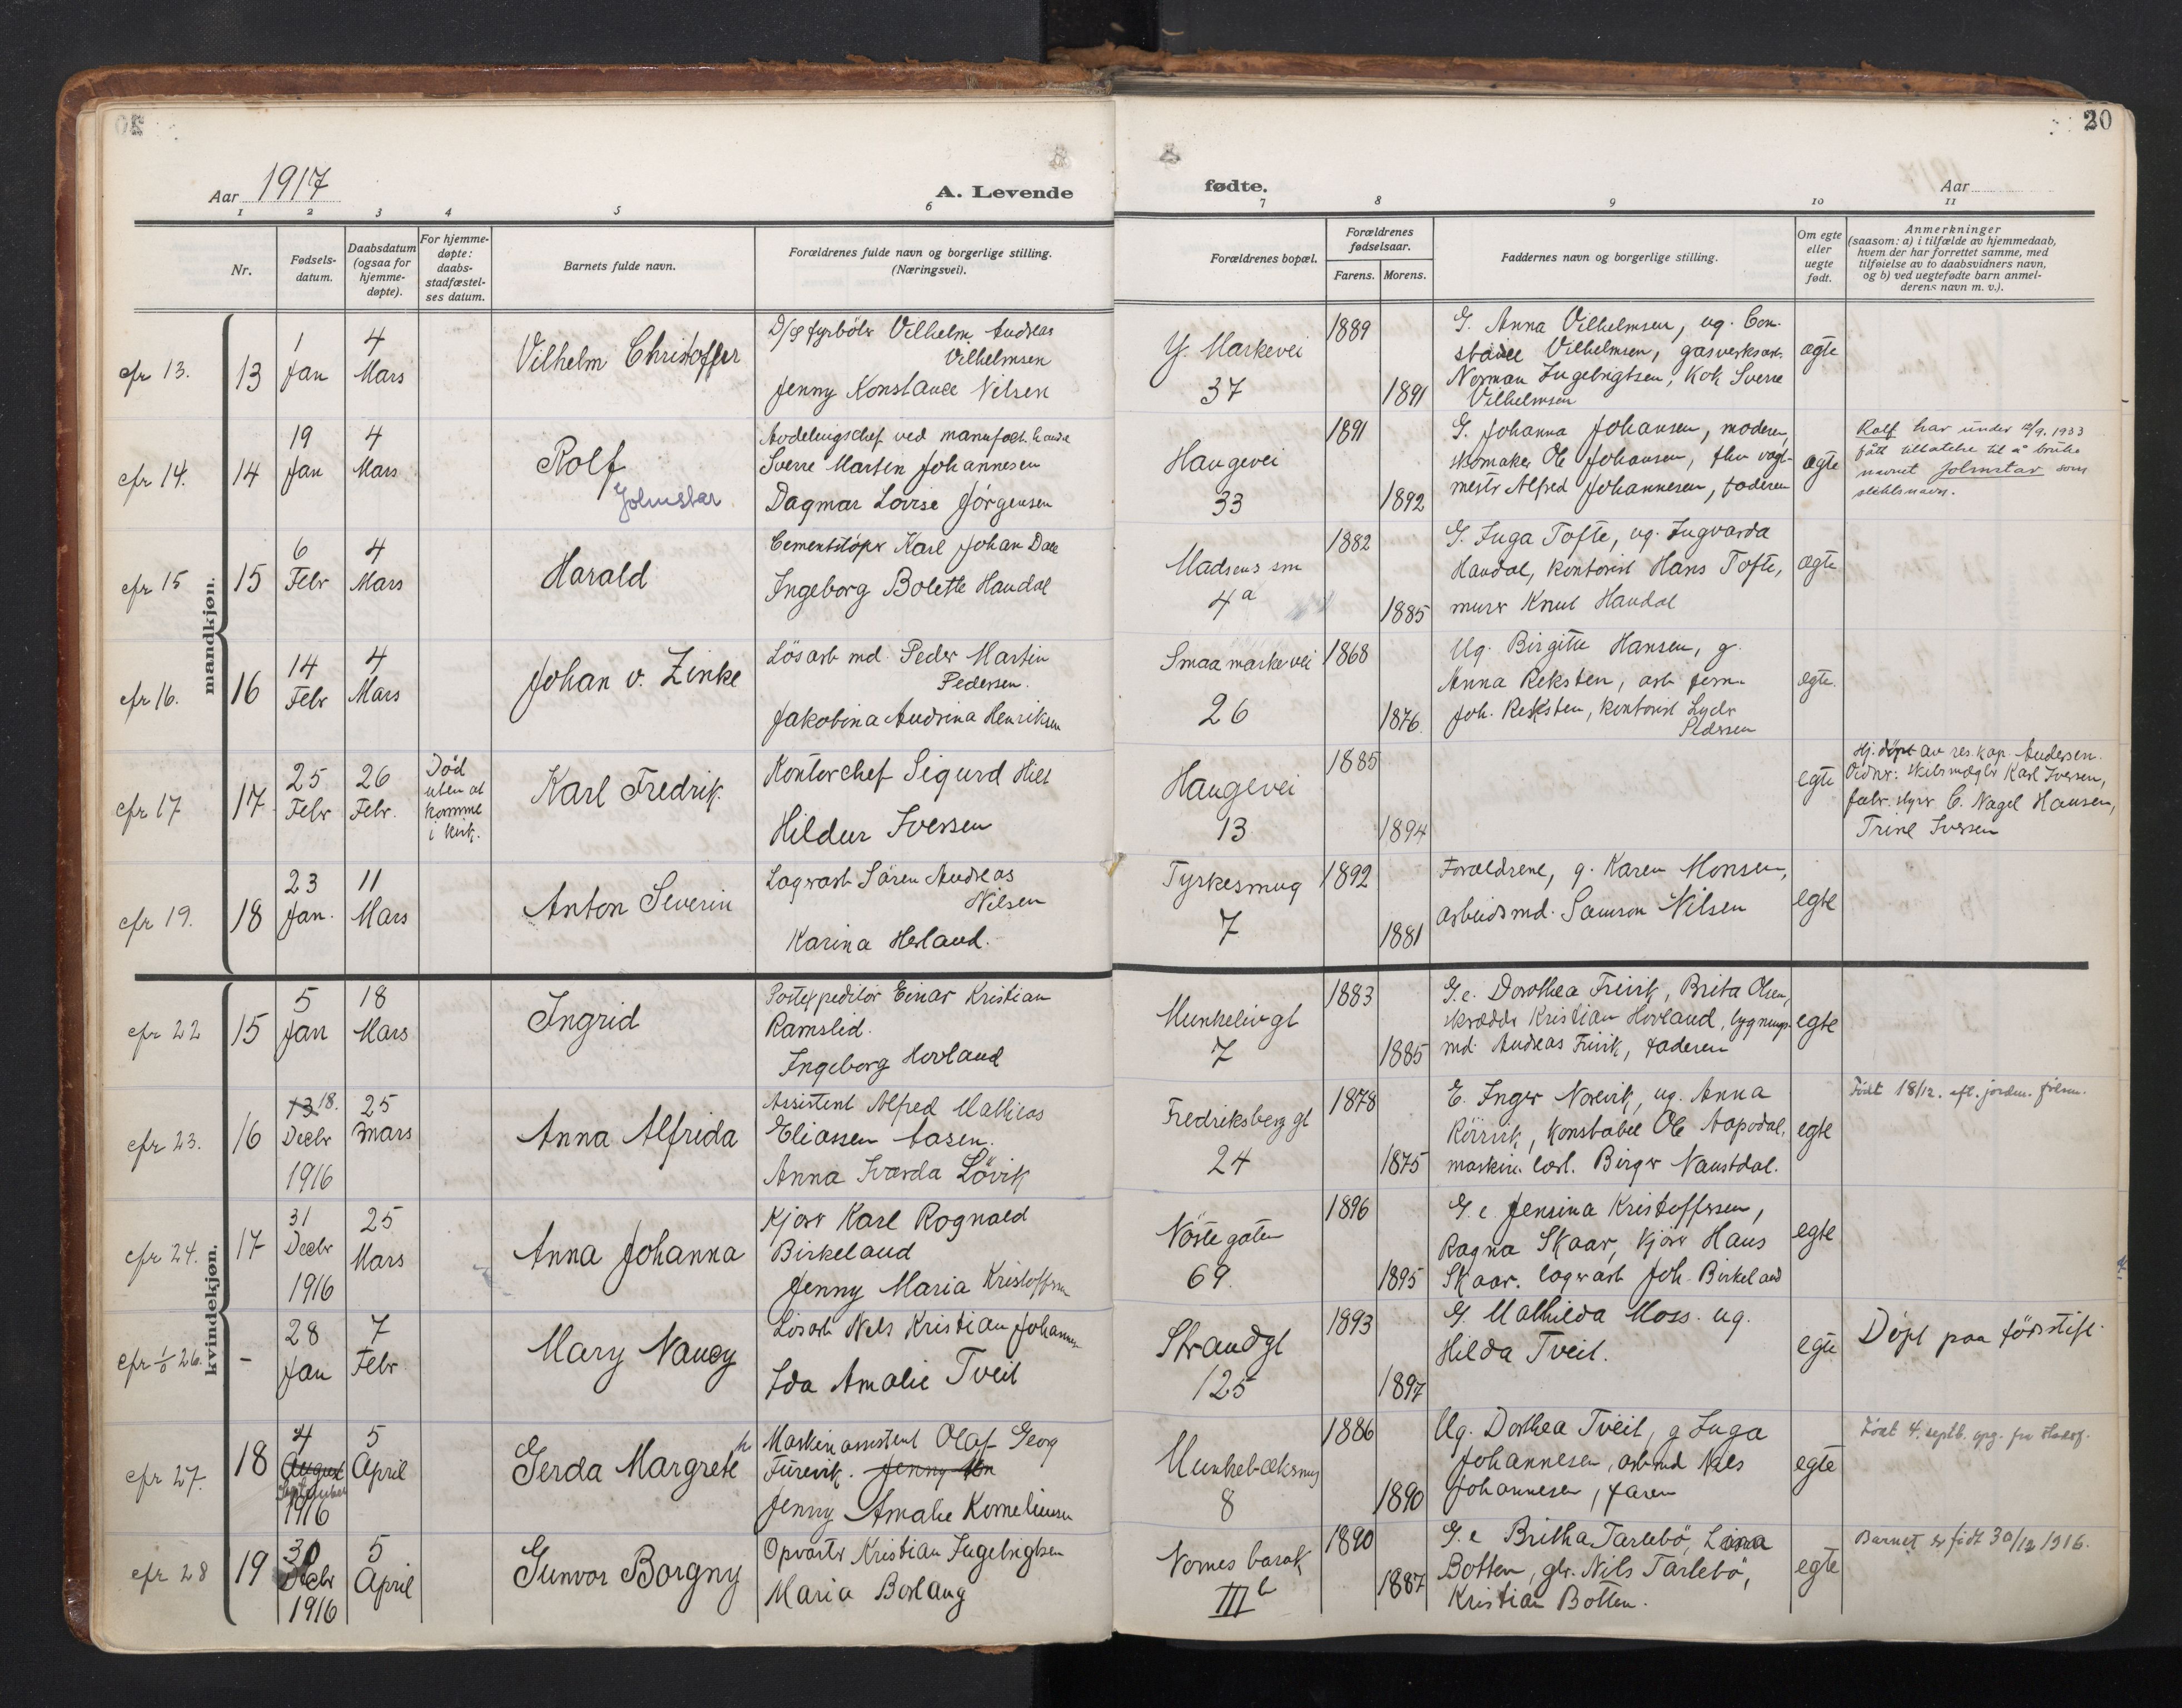 20
Aar 1917
A. Levende
fødte.
Aar
1 2 3 4 5 6 7 8 9 10 11
Nr.
Fødsels-
datum.
Daabsdatum
(ogsaa for
hjemme-
døpte).
For hjemme-
døpte:
daabs-
stadfæstel-
ses datum.
Barnets fulde navn.
Forældrenes fulde navn og borgerlige stilling.
(Næringsvei).
Forældrenes bopæl.
Forældrenes
fødselsaar.
Farens. Morens.
Faddernes navn og borgerlige stilling.
Om egte
eller
uegte
født.
Anmerkninger
(saasom: a) i tilfælde av hjemmedaab,
hvem der har forrettet samme, med
tilføielse av to daabsvidners navn,
og b) ved uegtefødte barn anmel-
derens navn m. v.).
mandkjøn.
cfr 13.
13
1
Jan
4
Mars
Vilhelm Christoffer
D/S fyrbøter Vilhelm Andreas
Vilhelmsen
Jenny Konstance Nilsen
Y. Markevei
37
1889
1891
G. Anna Vilhelmsen, ug. Con-
stance Vilhelmsen, gasverksarb.
Norman Ingebrigtsen, Kok Sverre
Vilhelmsen
ægte
cfr 14.
14
19
Jan
4
Mars
Rolf
Jolmstar
Avdelingschef ved manufakt. handel
Sverre Marten Johannesen
Dagmar Lovise Jørgensen
Haugevei
33
1891
1892
G. Johanna Johansen, moderen,
skomaker Ole Johansen, vagt-
mestr Alfred Johannesen, faderen
ægte
Rolf har under 12/9. 1933
fått tillatelse til å bruke
navnet Jolmstar som
slektsnavn.
cfr 15
15
6
Febr
4
Mars
Harald
Cementstøper Karl Johan Dale
Ingeborg Bolette Haudal
Madsens sm
4a
1882
1885
G. Inga Tofte, ug. Ingvarda
Haudal, kontorist Hans Tofte,
murer Knut Haudal
ægte
cfr 16.
16
14
Febr
4
Mars
Johan v. Zinke
Løsarb md. Peder Martin
Pedersen.
Jakobina Andrina Henriksen
Smaa markevei
26
1868
1876.
Ug. Birgitte Hansen, g.
Anna Reksten, arb form.
Joh. Reksten, kontorist Lyder
Pedersen
ægte.
cfr 17
17
25
Febr
26
Febr.
Død
uten at
komme
i kirk.
Karl Fredrik.
Kontorchef Sigurd Hilt
Hildur Iversen
Haugevei
13
1885
1894
egte
Hj. døpt av res. kap. Andersen.
Vidner: Skibsmægler Karl Iversen,
fabr. styrer C. Nagel Hansen,
Trine Iversen
cfr 19.
18
23
Jan.
11
Mars
Anton Severin
Lagerarb Søren Andreas
Nilsen
Karina Herland.
Tyrkesmug
7
1892
1881
Forældrene, g. Karen Monsen,
arbeidsmd. Samson Nilsen
egte
kvindekjøn.
cfr 22
15
5
Jan
18
Mars
Ingrid
Postexpeditør Einar Kristian
Ramslid.
Ingeborg Hovland
Munkelivgt
7
1883
1885
G. e. Dorothea Frivik, Brita Olsen,
skrædder Kristian Hovland, bygnings-
md. Andreas Frivik, faderen
egte
cfr 23.
16
13 18.
Decbr
1916
25
mars
Anna Alfrida
Assistent Alfred Mathias
Eliassen Aasen.
Anna Ivarda Løvik
Fredriksberg gt
24
1878
1875
E. Inger Norevik, ug. Anna
Rørvik, Konstabel Ole Aapodal,
maskin. lærl. Birger Naustdal.
egte
Født 18/12. efl. jordm. prtcn.
cfr 24.
17
31
Decbr
1916
25
Mars
Anna Johanna
Kjører Karl Rognald
Birkeland
Jenny Maria Kristoffersen
Nøstegaten
69.
1896
1895
G. e. Jensina Kristoffersen,
Ragna Skaar, kjører Hans
Skaar. lagerarb Joh. Birkeland
egte
cfr 26.
-
28
Jan
7
Febr
Mary Nancy
Løsarb Nils Kristian Johannesen
Ida Amalie Tveit
Strandgt
125
1893
1897
G. Mathilda Moss. ug.
Hilda Tveit.
egte
Døpt paa fødsstift.
cfr 27.
18
4
August
September
1916
5
April
Gerda Margrethe
Maskinassistent Olaf Georg
Furevik. Jenny Am
Jenny Amalie Korneliussen
Munkebæksmug
8
1886
1890
Ug. Dorthea Tveit, g Inga
Johannesen, arbmd Nils
Johannesen, faren
egte
Født 4. septb. opg. fra
cfr 28
19
30
Decbr
1916
5
April
Gunvor Borgny
Opvarter Kristian Ingebrigtsen
Maria Borlaug
Nornes barak
III b
1890
1887
G. e Britha Tarlebø, Lina
Botten, gbr. Nils Tarlebø,
Kristian Botten.
egte
Barnet er født 30/12 1916.